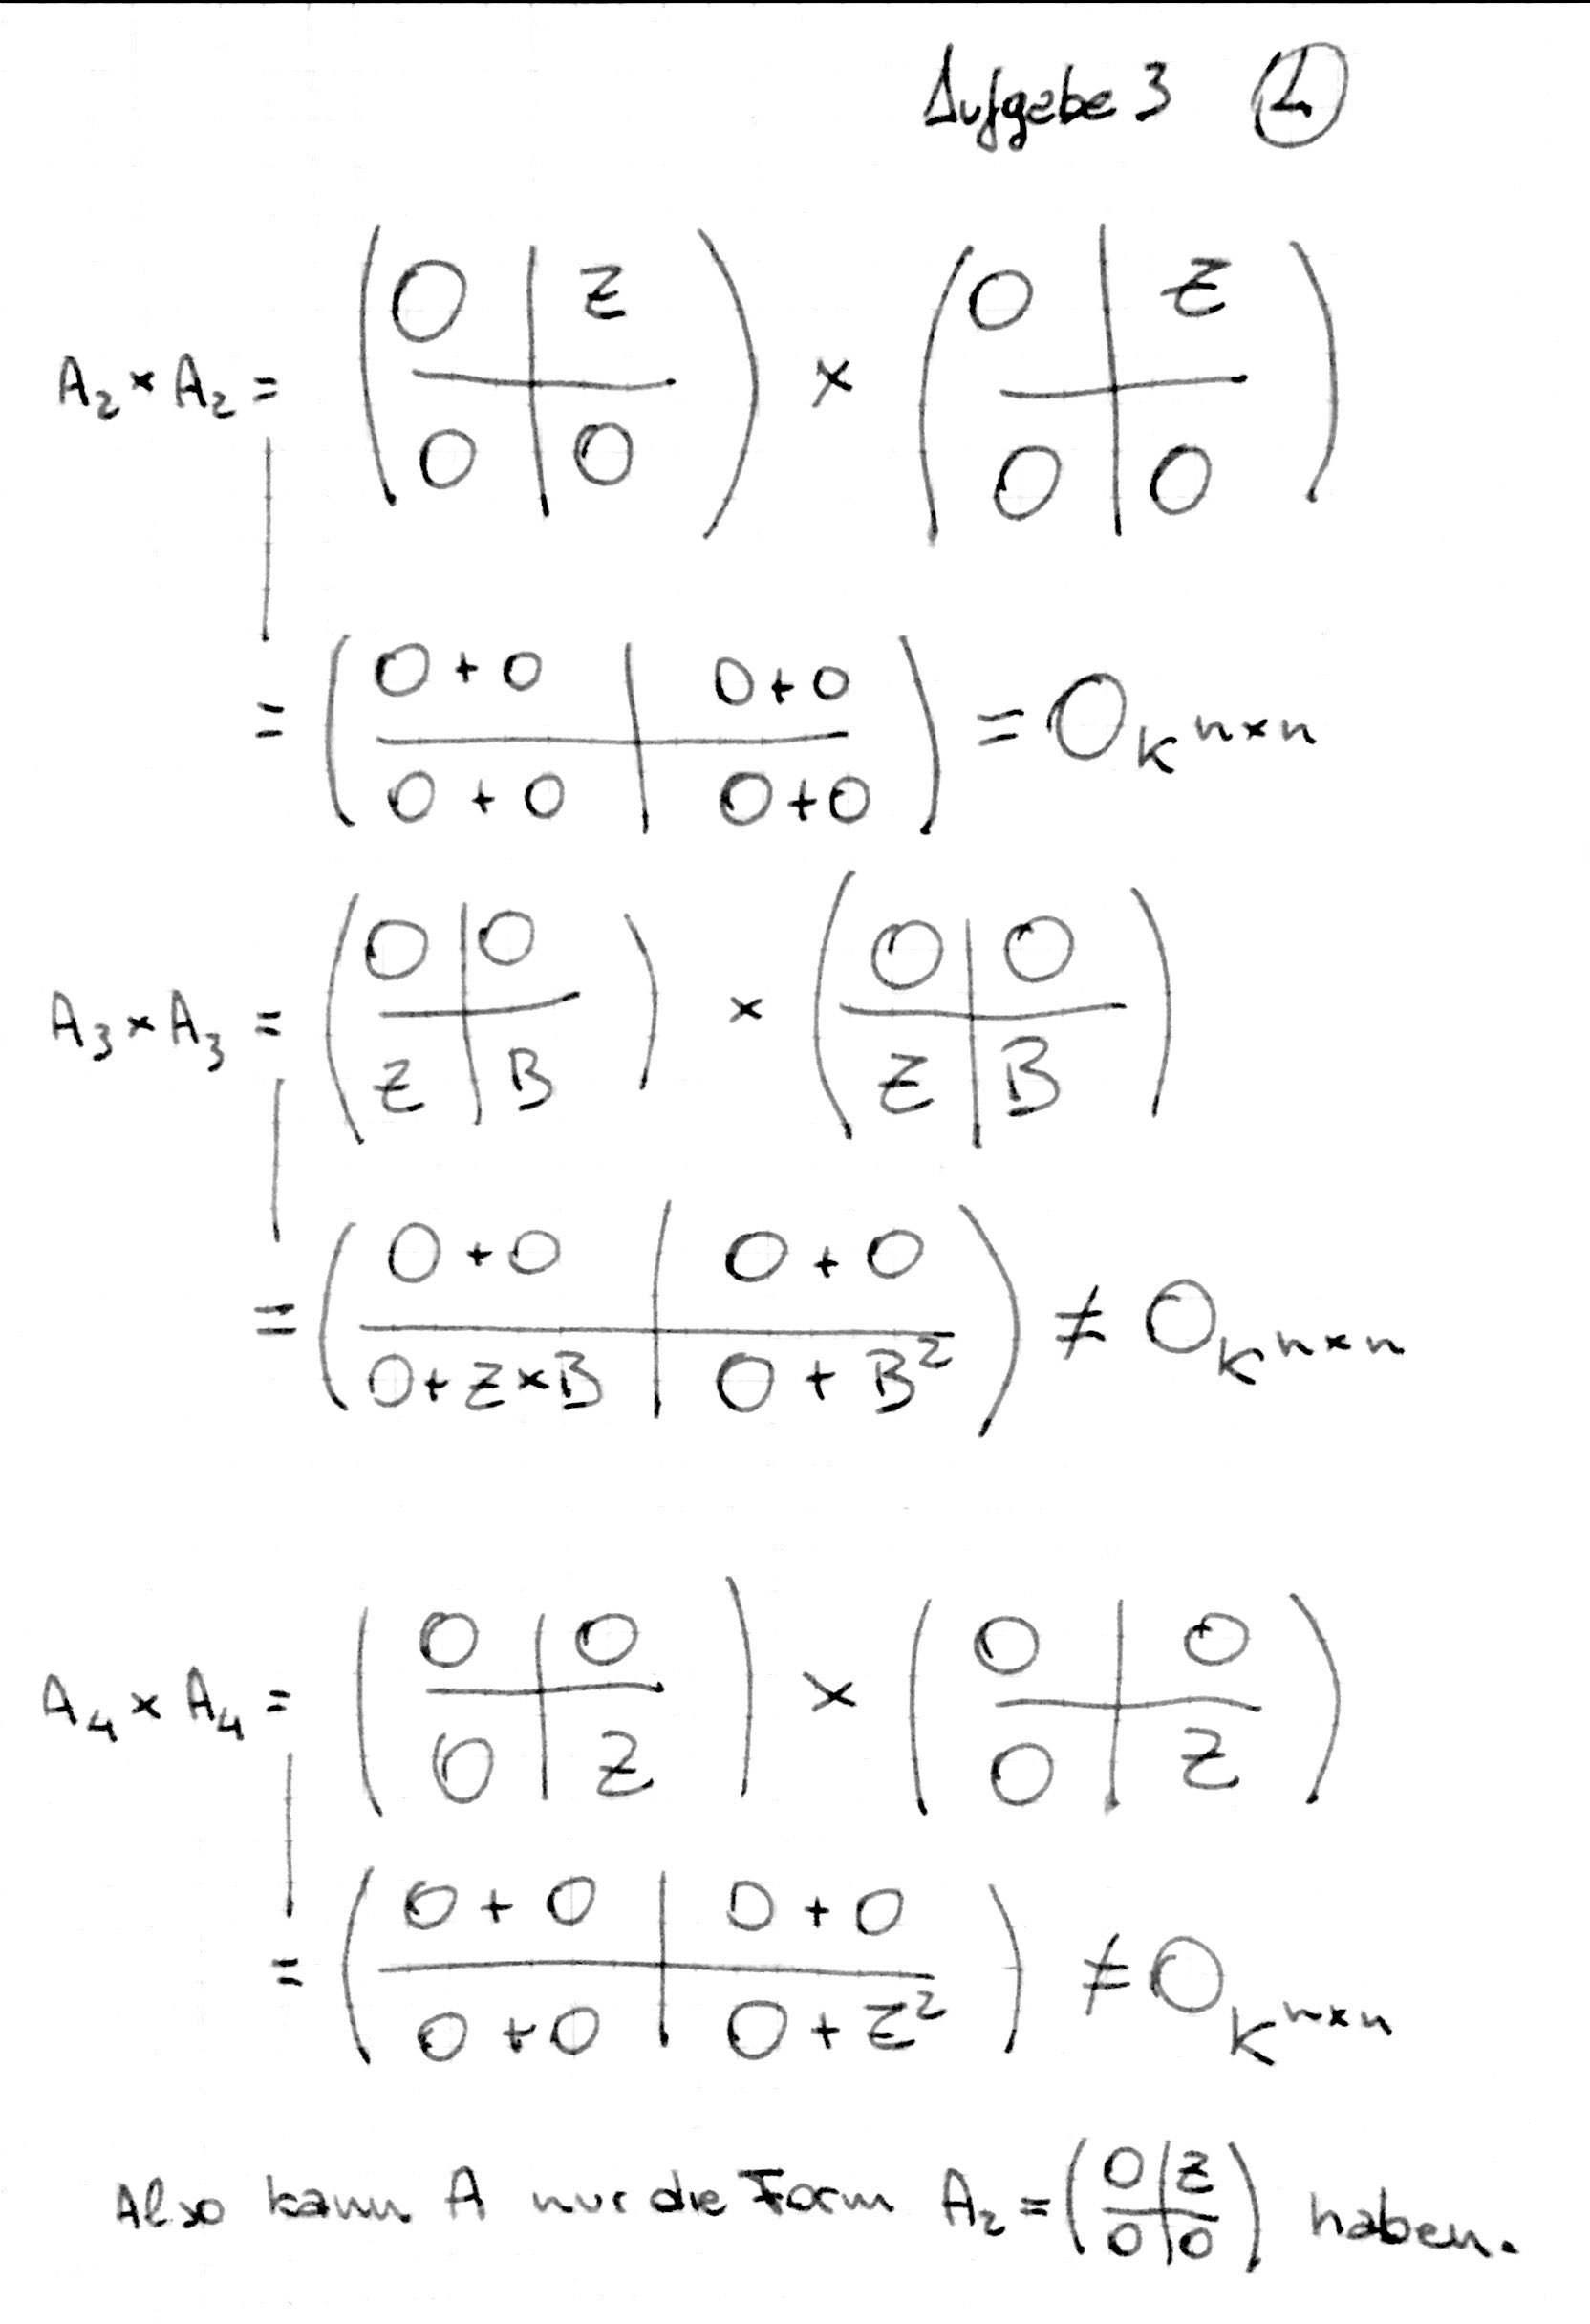 Aufgabe 3 ④
A₂ × A₂ = (0 | Z / 0 | 0) × (0 | Z / 0 | 0)
= (0 + 0 | 0 + 0 / 0 + 0 | 0 + 0) = O_K^{n×n}
A₃ × A₃ = (0 | 0 / Z | B) × (0 | 0 / Z | B)
= (0 + 0 | 0 + 0 / 0 + Z × B | 0 + B²) ≠ O_K^{n×n}
A₄ × A₄ = (0 | 0 / 0 | Z) × (0 | 0 / 0 | Z)
= (0 + 0 | 0 + 0 / 0 + 0 | 0 + Z²) ≠ O_K^{n×n}
Also kann A nur die Form A₂ = (0 | Z / 0 | 0) haben.